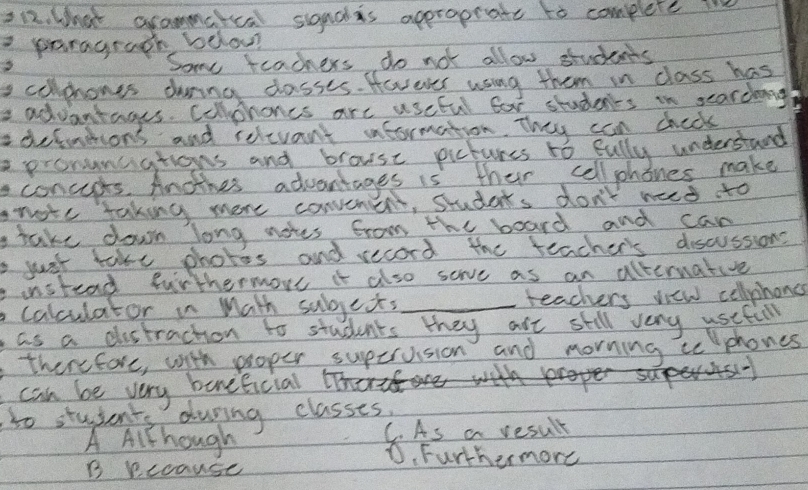 12. What grammatical signal is appropriate to complete the
paragraph below?
Some teachers do not allow students
cellphones during classes. However using them in class has
advantages. Cellphones are useful for students in searching
definitions and relevant information. They can check
pronunciations and browse pictures to fully understand
concepts. Another advantages is their cellphones make
note taking more convenient, Students don't need to
take down long notes from the board and can
just take photos and record the teacher's discussions
instead furthermore it also serve as an alternative
calculator in Math subjects ________ teachers view cellphones
as a distraction to students they are still very usefull
therefore, with proper supervision and morning cellphones
can be very beneficial (Therefore with proper supervisi-)
to students during classes.
A Although C. As a result
B Because D. Furthermore